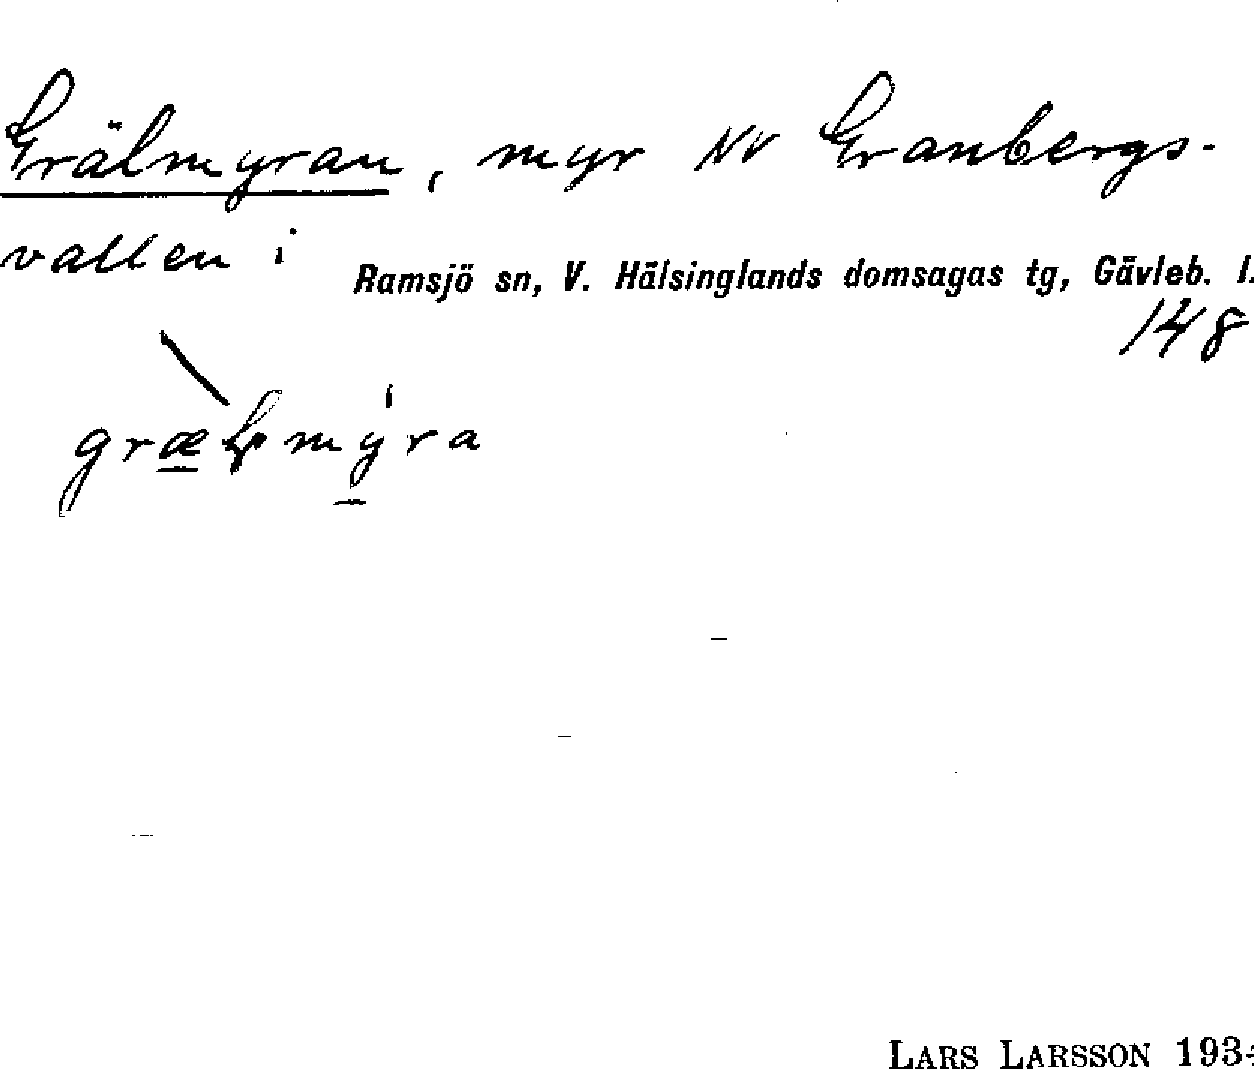 Grälmyran, myr NV Granbergs-
vallen i
Ramsjö sn, V. Hälsinglands domsagas tg, Gävleb. l.
148
LARS LARSSON 193